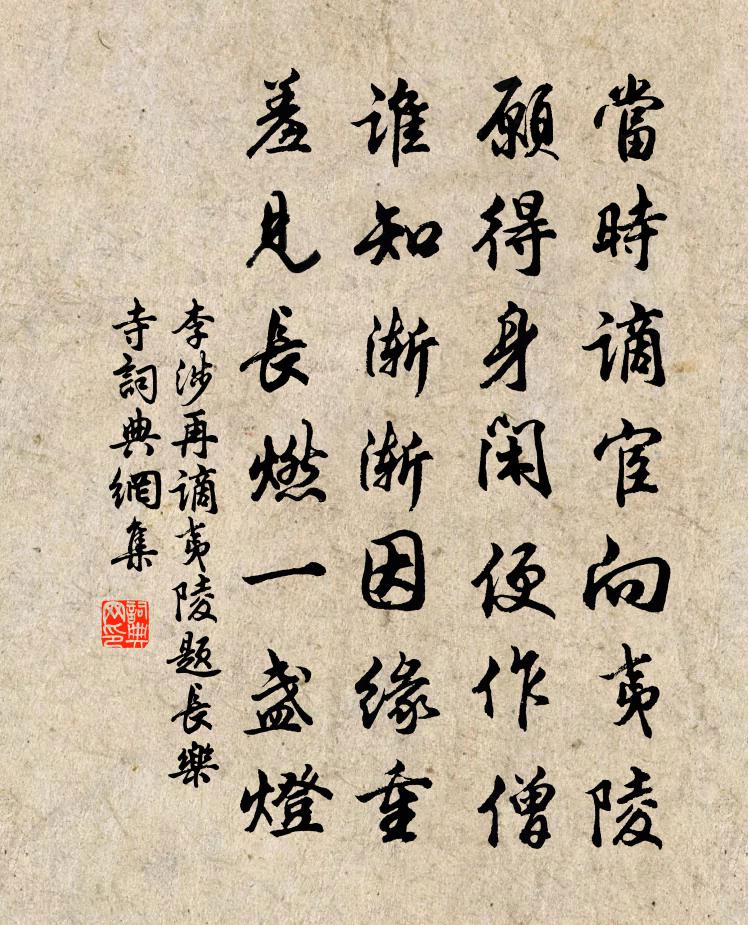 當時謫宦向夷陵
願得身閑便作僧
誰知漸漸因緣重
羞見長燃一盞燈
李涉再謫夷陵題長樂
寺詞典網集
詞典
网印